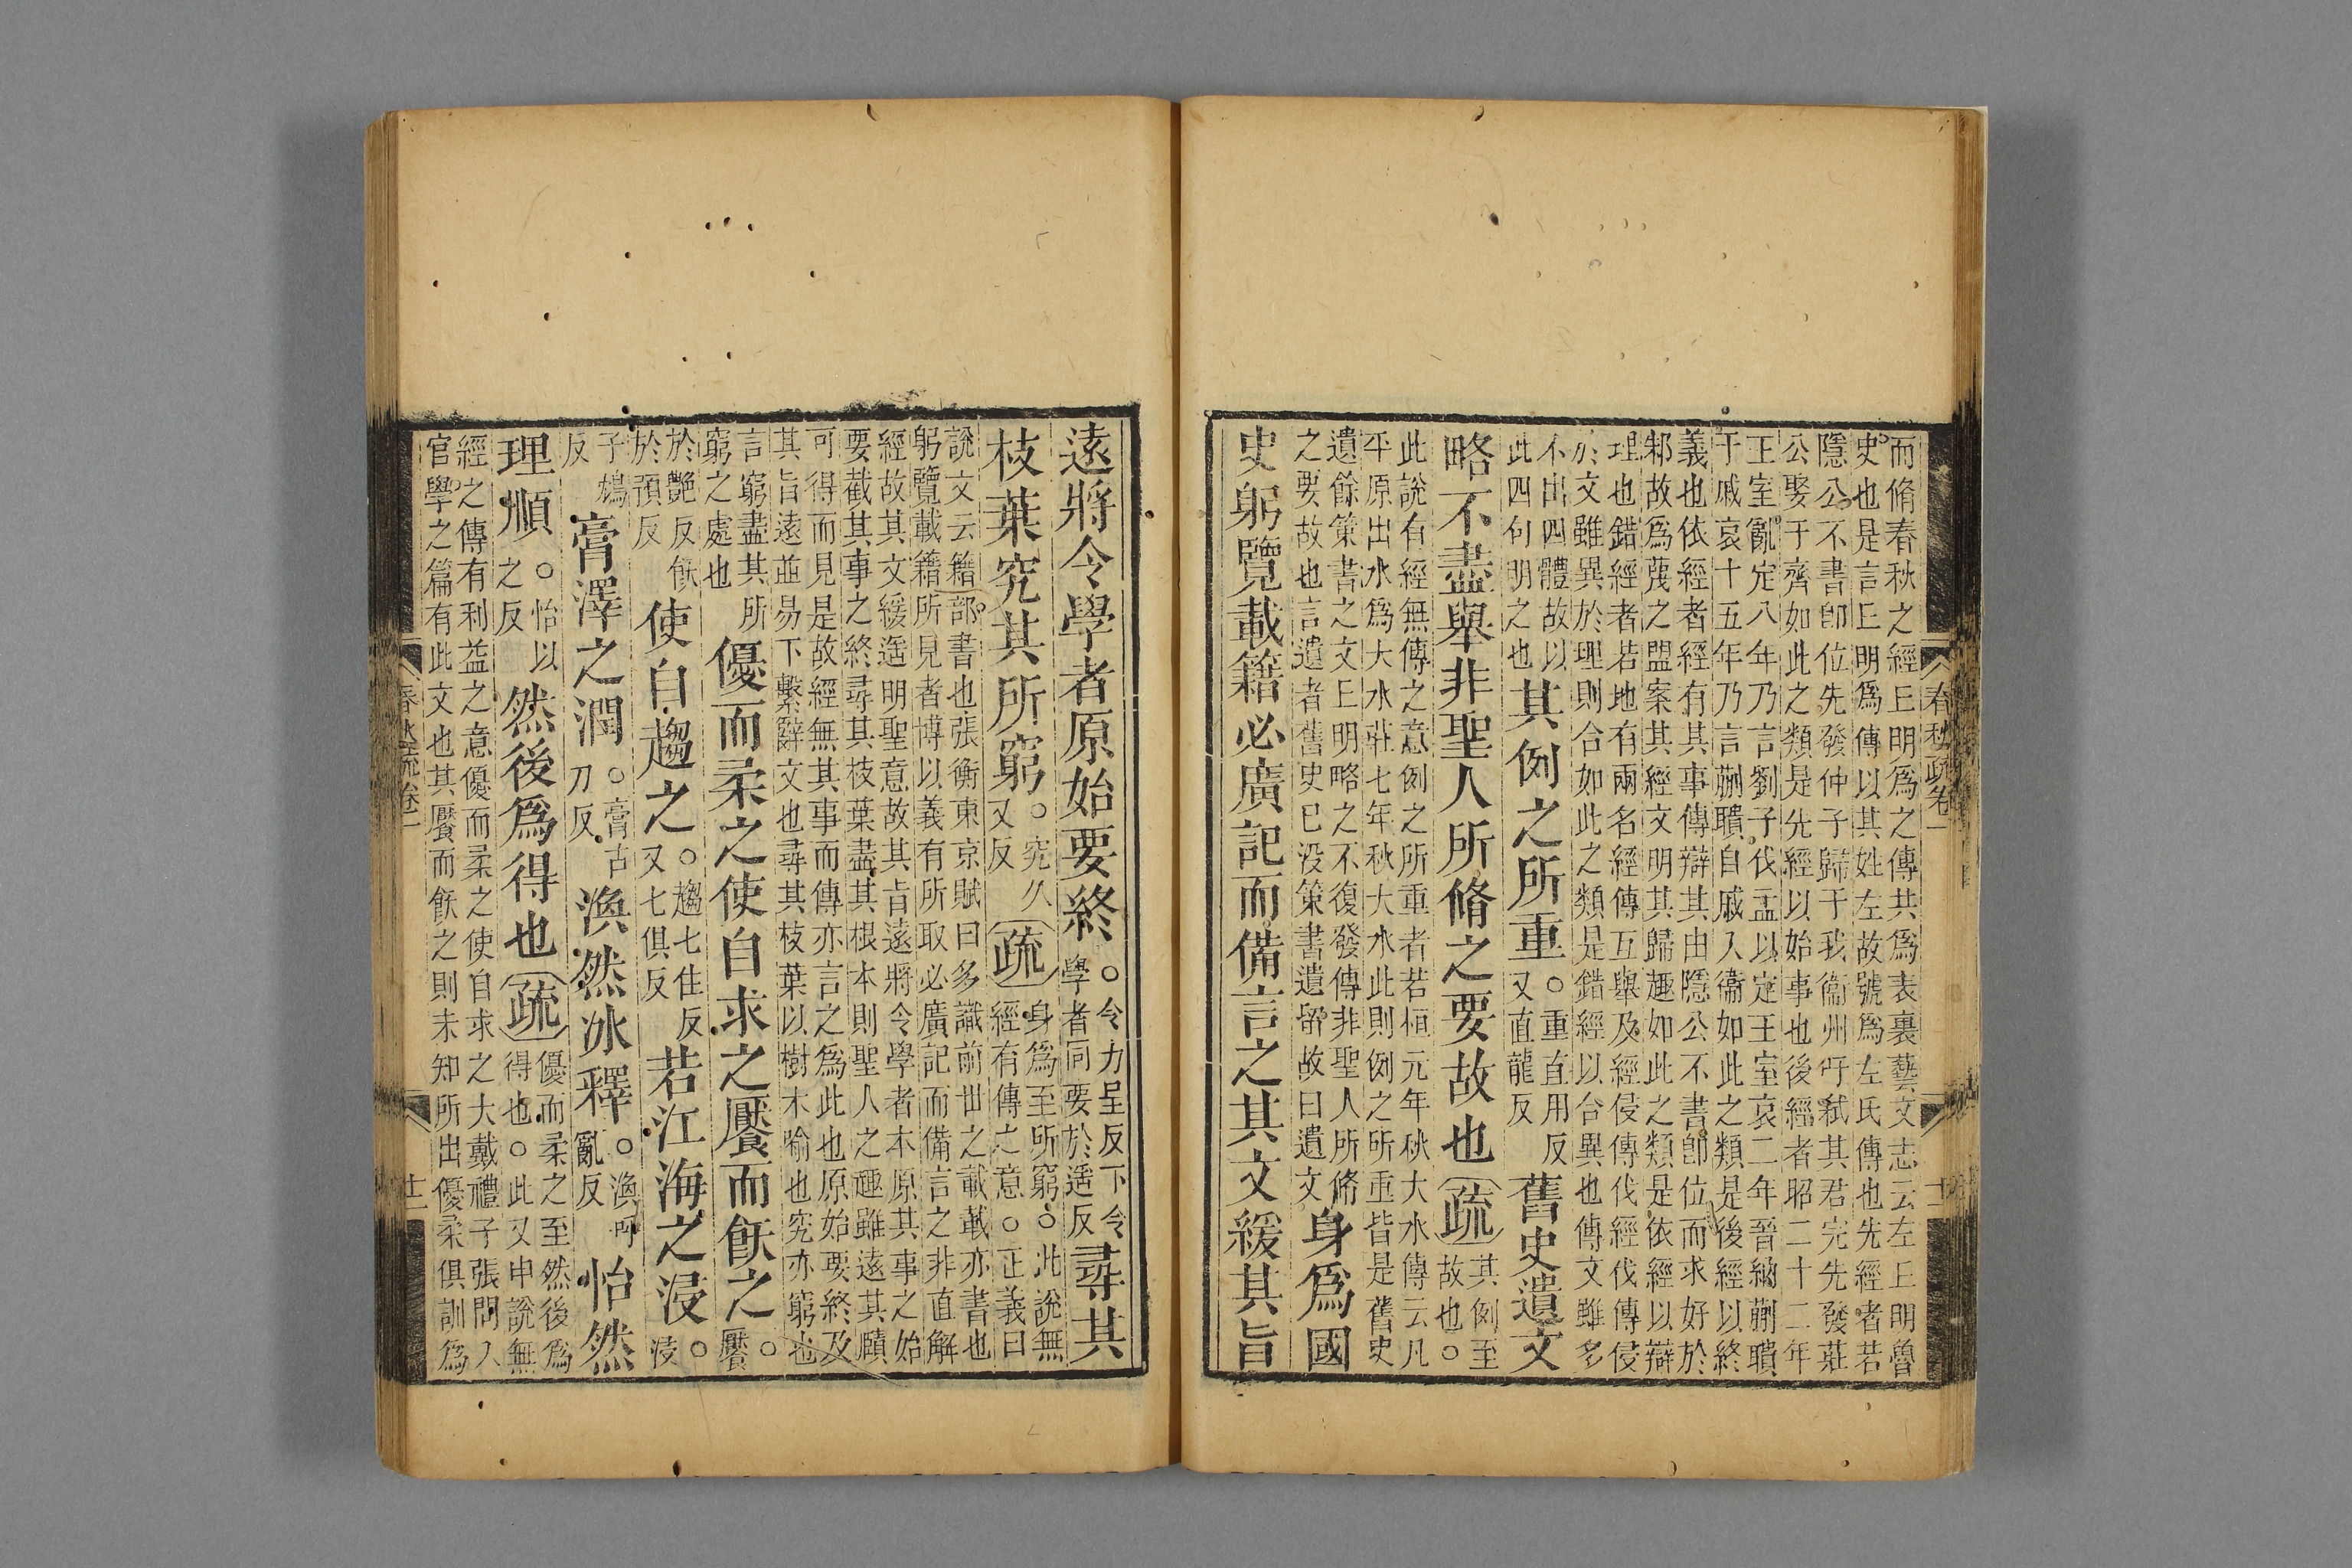 而脩春秋之經丘明爲之傳共爲表裏藝文志云左丘明魯
史也是言丘明爲傳以其姓左故號爲左氏傳也先經者若
隱公不書卽位先發仲子歸于我衞州吁弑其君完先發莊
公娶于齊如此之類是先經以始事也後經者昭二十二年
王室亂定八年乃言劉子伐盂以定王室哀二年晉納蒯聵
于戚哀十五年乃言蒯聵自戚入衞如此之類是後經以終
義也依經者經有其事傳辯其由隱公不書卽位而求好於
邾故爲蔑之盟案其經文明其歸趣如此之類是依經以辯
理也錯經者若地有兩名經傳互舉及經侵傳伐經伐傳侵
於文雖異於理則合如此之類是錯經以合異也傳文雖多
不出四體故以
此四句明之也
其例之所重
○重直用反
又直龍反
舊史遺文
略不盡舉非聖人所脩之要故也
疏
其例至
故也○
此說有經無傳之意例之所重者若桓元年秋大水傳云凡
平原出水爲大水莊七年秋大水此則例之所重皆是舊史
遺餘策書之文丘明略之不復發傳非聖人所脩
之要故也言遺者舊史已没策書遺留故曰遺文
身爲國
史躬覽載籍必廣記而備言之其文緩其旨
遠將令學者原始要終
○令力呈反下令
學者同要於遥反
尋其
枝葉究其所窮
○究久
又反
疏
身爲至所窮○此說無
經有傳之意○正義曰
說文云籍部書也張衡東京賦曰多識前世之載載亦書也
躬覽載籍所見者博以義有所取必廣記而備言之非直解
經故其文緩遥明聖意故其旨遠將令學者本原其事之始
要截其事之終尋其枝葉盡其根本則聖人之趣雖遠其賾
可得而見是故經無其事而傳亦言之爲此也原始要終及
其旨遠並易下繫辭文也尋其枝葉以樹木喻也究亦窮也
言窮盡其所
窮之處也
優而柔之使自求之饜而飫之
○
饜
於艷反飫
於預反
使自趨之
○趨七住反
又七俱反
若江海之浸
○
浸
子鴆
反
膏澤之潤
○膏古
刀反
渙然冰釋
○渙呼
亂反
怡然
理順
○怡以
之反
然後爲得也
疏
優而柔之至然後爲
得也○此又申說無
經之傳有利益之意優而柔之使自求之大戴禮子張問入
官學之篇有此文也其饜而飫之則未知所出優柔俱訓爲
春秋疏卷一
十一